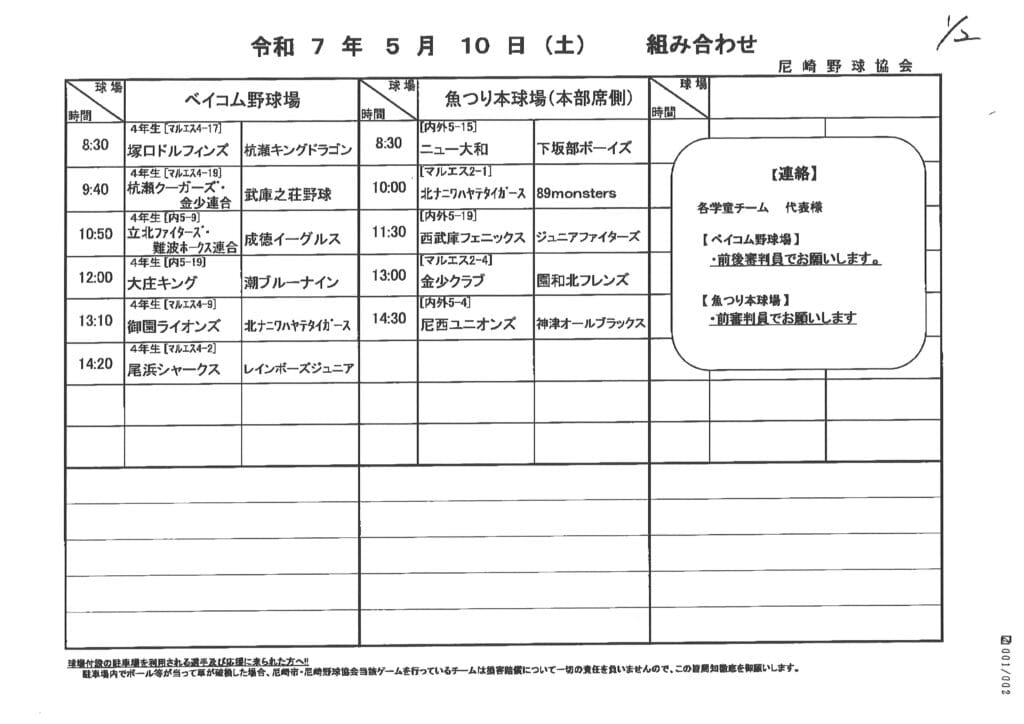 1/2
令和 7 年 5 月 10 日（土） 組み合わせ
尼崎野球協会
球場
時間
ベイコム野球場
球場
時間
魚つり本球場（本部席側）
球場
時間
8:30
4年生 [マルエス4-17]
塚口ドルフィンズ
杭瀬キングドラゴン
9:40
4年生 [マルエス4-19]
杭瀬クーガーズ・
金少連合
武庫之荘野球
10:50
4年生 [内5-9]
立北ファイターズ・
難波ホークス連合
成徳イーグルス
12:00
4年生 [内5-19]
大庄キング
潮ブルーナイン
13:10
4年生 [マルエス4-9]
御園ライオンズ
北ナニワハヤテタイガース
14:20
4年生 [マルエス4-2]
尾浜シャークス
レインボーズジュニア
8:30
[内外5-15]
ニュー大和
下坂部ボーイズ
10:00
[マルエス2-1]
北ナニワハヤテタイガース
89monsters
11:30
[内外5-19]
西武庫フェニックス
ジュニアファイターズ
13:00
[マルエス2-4]
金少クラブ
園和北フレンズ
14:30
[内外5-4]
尼西ユニオンズ
神津オールブラックス
【連絡】
各学童チーム 代表様
【ベイコム野球場】
・前後審判員でお願いします。
【魚つり本球場】
・前審判員でお願いします
球場付設の駐車場を利用される選手及び応援に来られた方へ!!
駐車場内でボール等が当って車が破損した場合、尼崎市・尼崎野球協会当該ゲームを行っているチームは損害賠償について一切の責任を負いませんので、この旨周知徹底を御願いします。
001/002